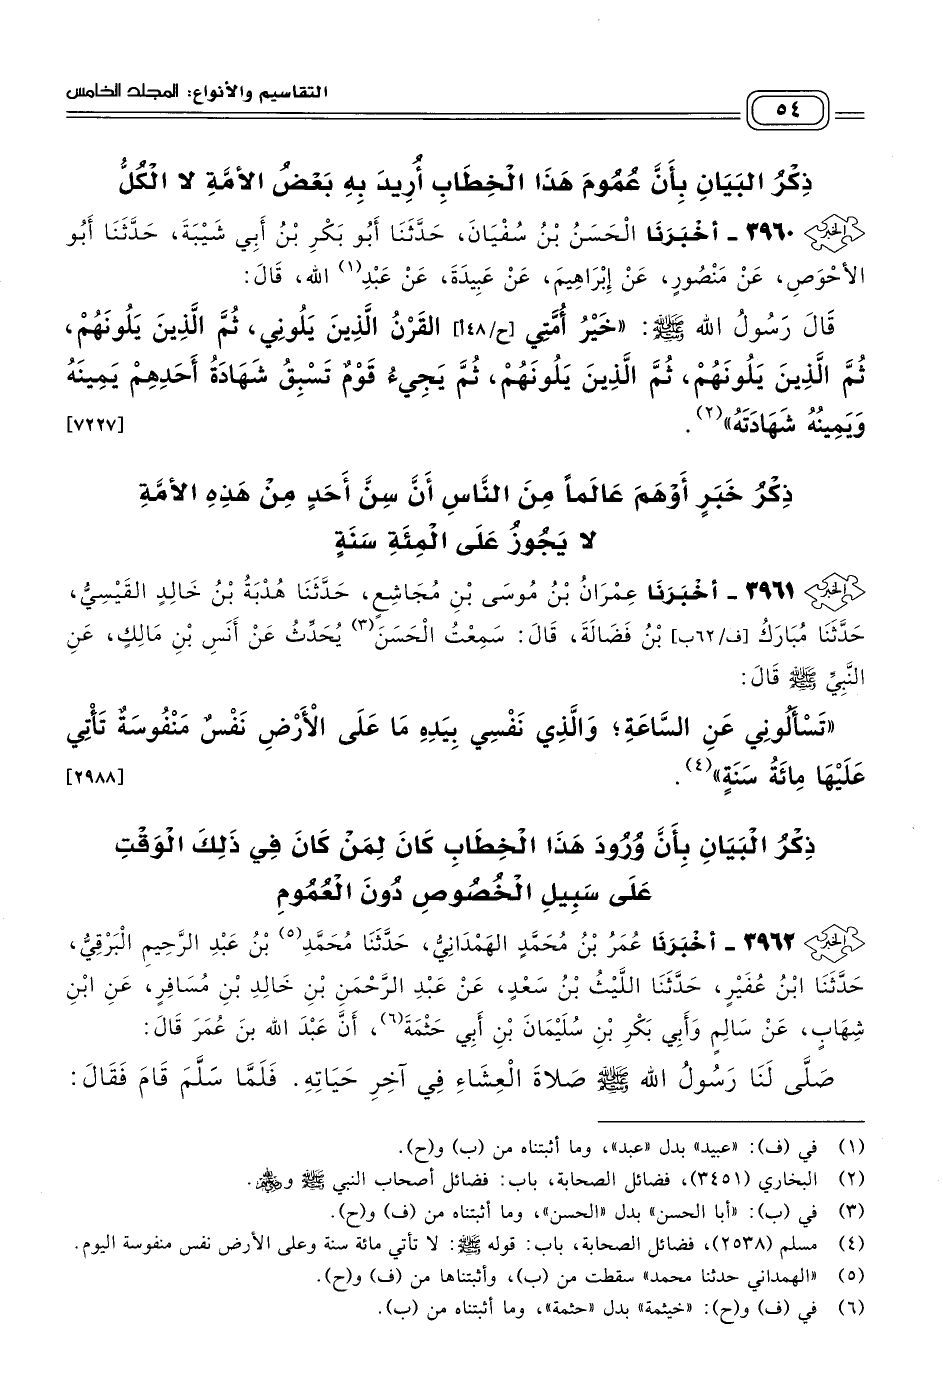 التقاسيم والأنواع: المجلد الخامس
٥٤
ذِكْرُ البَيَانِ بِأَنَّ عُمُومَ هَذَا الْخِطَابِ أُرِيدَ بِهِ بَعْضُ الأمَّةِ لا الْكُلُّ
٣٩٦٠ ـ أخْبَرَنَا الْحَسَنُ بْنُ سُفْيَانَ، حَدَّثَنَا أَبُو بَكْرِ بْنُ أَبِي شَيْبَةَ، حَدَّثَنَا أَبُو
الأحْوَصِ، عَنْ مَنْصُورٍ، عَنْ إِبْرَاهِيمَ، عَنْ عَبِيدَةَ، عَنْ عَبْدِ(١) الله، قَالَ:
قَالَ رَسُولُ الله ﷺ: «خَيْرُ أُمَّتِي [ح/١٤٨أ] القَرْنُ الَّذِينَ يَلُونِي، ثُمَّ الَّذِينَ يَلُونَهُمْ،
ثُمَّ الَّذِينَ يَلُونَهُمْ، ثُمَّ الَّذِينَ يَلُونَهُمْ، ثُمَّ يَجِيءُ قَوْمٌ تَسْبِقُ شَهَادَةُ أَحَدِهِمْ يَمِينَهُ
وَيَمِينُهُ شَهَادَتَهُ»(٢). [٧٢٢٧]
ذِكْرُ خَبَرٍ أَوْهَمَ عَالَماً مِنَ النَّاسِ أَنَّ سِنَّ أَحَدٍ مِنْ هَذِهِ الأمَّةِ
لا يَجُوزُ عَلَى الْمِئَةِ سَنَةٍ
٣٩٦١ ـ أخْبَرَنَا عِمْرَانُ بْنُ مُوسَى بْنِ مُجَاشِعٍ، حَدَّثَنَا هُدْبَةُ بْنُ خَالِدٍ القَيْسِيُّ،
حَدَّثَنَا مُبَارَكُ [ف/٦٢ب] بْنُ فَضَالَةَ، قَالَ: سَمِعْتُ الْحَسَنَ(٣) يُحَدِّثُ عَنْ أَنَسِ بْنِ مَالِكٍ، عَنِ
النَّبِيِّ ﷺ قَالَ:
«تَسْأَلُونِي عَنِ السَّاعَةِ؛ وَالَّذِي نَفْسِي بِيَدِهِ مَا عَلَى الْأَرْضِ نَفْسٌ مَنْفُوسَةٌ تَأْتِي
عَلَيْهَا مِائَةُ سَنَةٍ»(٤). [٢٩٨٨]
ذِكْرُ الْبَيَانِ بِأَنَّ وُرُودَ هَذَا الْخِطَابِ كَانَ لِمَنْ كَانَ فِي ذَلِكَ الْوَقْتِ
عَلَى سَبِيلِ الْخُصُوصِ دُونَ الْعُمُومِ
٣٩٦٢ ـ أخْبَرَنَا عُمَرُ بْنُ مُحَمَّدٍ الهَمْدَانِيُّ، حَدَّثَنَا مُحَمَّدُ(٥) بْنُ عَبْدِ الرَّحِيمِ الْبَرْقِيُّ،
حَدَّثَنَا ابْنُ عُفَيْرٍ، حَدَّثَنَا اللَّيْثُ بْنُ سَعْدٍ، عَنْ عَبْدِ الرَّحْمَنِ بْنِ خَالِدِ بْنِ مُسَافِرٍ، عَنِ ابْنِ
شِهَابٍ، عَنْ سَالِمٍ وَأَبِي بَكْرِ بْنِ سُلَيْمَانَ بْنِ أَبِي حَثْمَةَ(٦)، أَنَّ عَبْدَ الله بنَ عُمَرَ قَالَ:
صَلَّى لَنَا رَسُولُ الله ﷺ صَلاةَ الْعِشَاءِ فِي آخِرِ حَيَاتِهِ. فَلَمَّا سَلَّمَ قَامَ فَقَالَ:
(١) في (ف): «عبيد» بدل «عبد»، وما أثبتناه من (ب) و(ح).
(٢) البخاري (٣٤٥١)، فضائل الصحابة، باب: فضائل أصحاب النبي ﷺ و﵃.
(٣) في (ب): «أبا الحسن» بدل «الحسن»، وما أثبتناه من (ف) و(ح).
(٤) مسلم (٢٥٣٨)، فضائل الصحابة، باب: قوله ﷺ: لا تأتي مائة سنة وعلى الأرض نفس منفوسة اليوم.
(٥) «الهمداني حدثنا محمد» سقطت من (ب)، وأثبتناها من (ف) و(ح).
(٦) في (ف) و(ح): «خيثمة» بدل «حثمة»، وما أثبتناه من (ب).